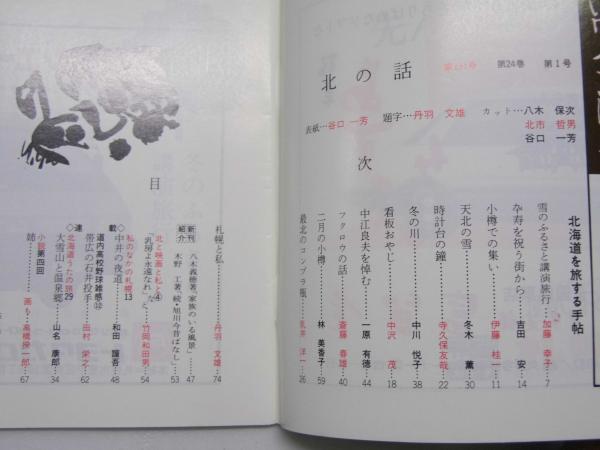 北の話
第24巻
第1号
表紙…谷口 一芳
題字…丹羽 文雄
カット…八木 保次
北市 哲男
谷口 一芳
目
次
北海道を旅する手帖
雪のふるさと講演旅行…加藤 幸子…7
傘寿を祝う街から…吉田 安…14
小樽での集い…伊藤 桂一…11
天北の雪…冬木 薫…30
時計台の鐘…寺久保友哉…22
冬の川…中川 悦子…38
看板おやじ…中沢 茂…18
中江良夫を悼む…一原 有徳…44
フクロウの話…斎藤 春雄…40
二月の小樽…林 美香子…59
最北のコンプラ瓶…乳井 洋一…26
札幌と私…丹羽 文雄…74
新刊紹介
八木義徳著「家族のいる風景」…47
木野 工著「続・旭川今昔ばなし」…53
北と映画と私④
「乳房よ永遠なれ」など…竹岡和田男…54
私のなかの札幌13
中井の夜道…和田 謹吾…48
◇連載◇
道内高校野球雑感⑫
帯広の石井投手…田村 栄之…62
北海道うたの旅29
大雪山と温泉郷…山名 康郎…34
小説第四回
姉…画も・高橋揆一郎…67